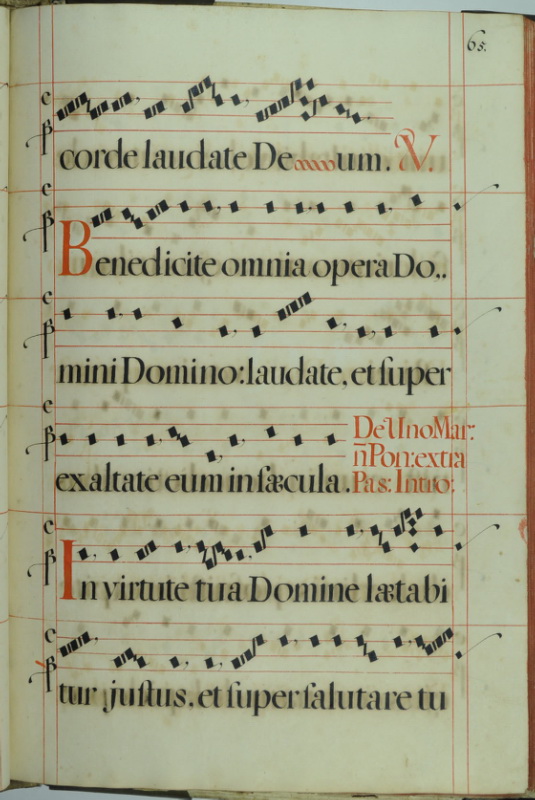 65.
corde laudate Deum. V.
Benedicite omnia opera Do..
mini Domino: laudate, et ſuper
exaltate eum in ſæcula.
De Uno Mar:
ñ Pon: extra
Pas: Intro:
In virtute tua Domine lætabi
tur juſtus. et ſuper ſalutare tu